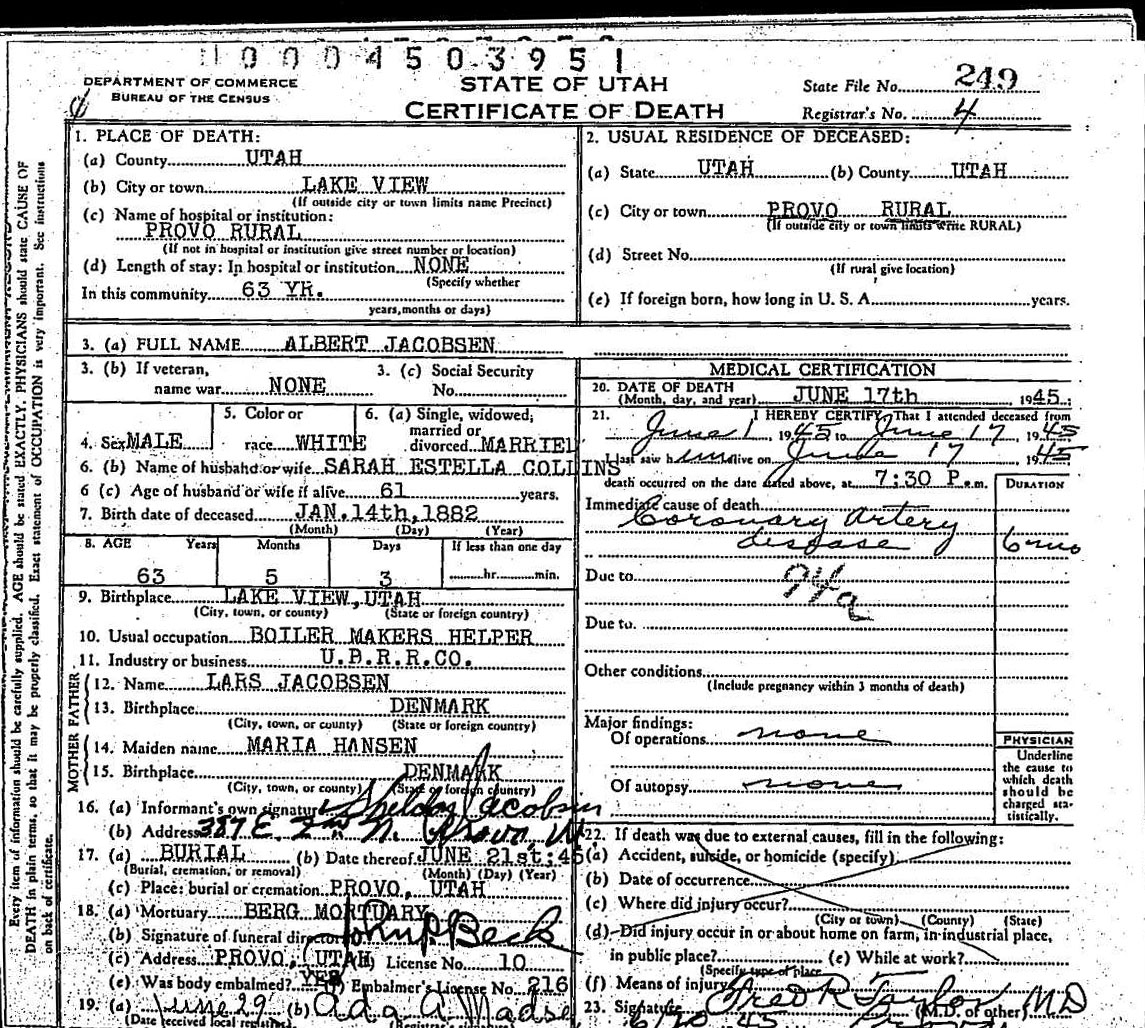 0004503951
DEPARTMENT OF COMMERCE
BUREAU OF THE CENSUS
STATE OF UTAH
CERTIFICATE OF DEATH
State File No. 249
Registrar's No. 4
1. PLACE OF DEATH:
(a) County UTAH
(b) City or town LAKE VIEW
(If outside city or town limits name Precinct)
(c) Name of hospital or institution:
PROVO RURAL
(If not in hospital or institution give street number or location)
(d) Length of stay: In hospital or institution NONE
(Specify whether
In this community 63 YR.
years, months or days)
2. USUAL RESIDENCE OF DECEASED:
(a) State UTAH (b) County UTAH
(c) City or town PROVO RURAL
(If outside city or town limits write RURAL)
(d) Street No.
(If rural give location)
(e) If foreign born, how long in U. S. A. years.
3. (a) FULL NAME ALBERT JACOBSEN
3. (b) If veteran, name war NONE
3. (c) Social Security No.
4. Sex MALE
5. Color or race WHITE
6. (a) Single, widowed, married or divorced MARRIED
6. (b) Name of husband or wife SARAH ESTELLA COLLINS
6 (c) Age of husband or wife if alive 61 years.
7. Birth date of deceased JAN.14th,1882
(Month) (Day) (Year)
8. AGE Years Months Days If less than one day
63 5 3 hr. min.
9. Birthplace LAKE VIEW, UTAH
(City, town, or county) (State or foreign country)
10. Usual occupation BOILER MAKERS HELPER
11. Industry or business U.P.R.R.CO.
FATHER
12. Name LARS JACOBSEN
13. Birthplace DENMARK
(City, town, or county) (State or foreign country)
MOTHER
14. Maiden name MARIA HANSEN
15. Birthplace DENMARK
(City, town, or county) (State or foreign country)
16. (a) Informant's own signature Sheldon Jacobsen
(b) Address 387 E. 2nd N. Provo, Ut
17. (a) BURIAL (b) Date thereof JUNE 21st;45
(Burial, cremation, or removal) (Month) (Day) (Year)
(c) Place: burial or cremation PROVO, UTAH
18. (a) Mortuary BERG MORTUARY
(b) Signature of funeral director John P Beck
(c) Address PROVO, UTAH License No. 10
(e) Was body embalmed? YES Embalmer's License No. 216
19. (a) June 29 (b) Ada A Madse
(Date received local registrar) (Registrar's signature)
MEDICAL CERTIFICATION
20. DATE OF DEATH JUNE 17th 1945
(Month, day, and year)
21. I HEREBY CERTIFY, That I attended deceased from
June 1 1945 to June 17 1945
I last saw him alive on June 17 1945
death occurred on the date stated above, at 7:30 P.m.
DURATION
Immediate cause of death
Coronary artery
disease 6 mo
Due to 94a
Due to
Other conditions
(Include pregnancy within 3 months of death)
Major findings:
Of operations none
Of autopsy none
PHYSICIAN
Underline
the cause to
which death
should be
charged sta-
tistically.
22. If death was due to external causes, fill in the following:
(a) Accident, suicide, or homicide (specify)
(b) Date of occurrence
(c) Where did injury occur?
(City or town) (County) (State)
(d) Did injury occur in or about home on farm, in industrial place,
in public place? (e) While at work?
(Specify type of place
(f) Means of injury
23. Signature Fred R Taylor MD
(M.D. of other)
6/20 45
Every item of information should be carefully supplied. AGE should be stated EXACTLY. PHYSICIANS should state CAUSE OF
DEATH in plain terms, so that it may be properly classified. Exact statement of OCCUPATION is very important. See instructions
on back of certificate.